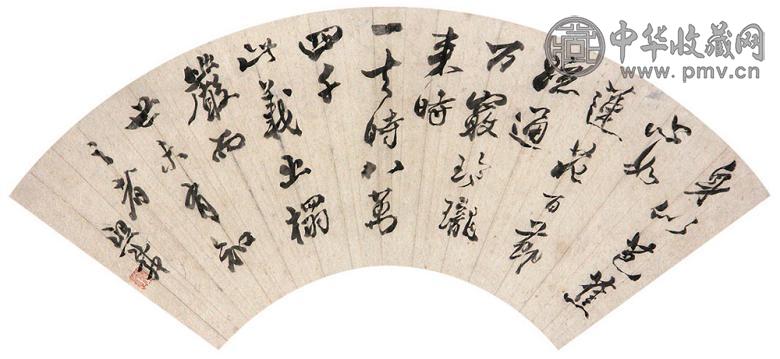 身如芭蕉
心如
蓮花百節
疏通
万竅玲瓏
来時
一去時八萬
四千
此義出楞
嚴而
世未有知
之者
中华收藏网
www.pmv.cn